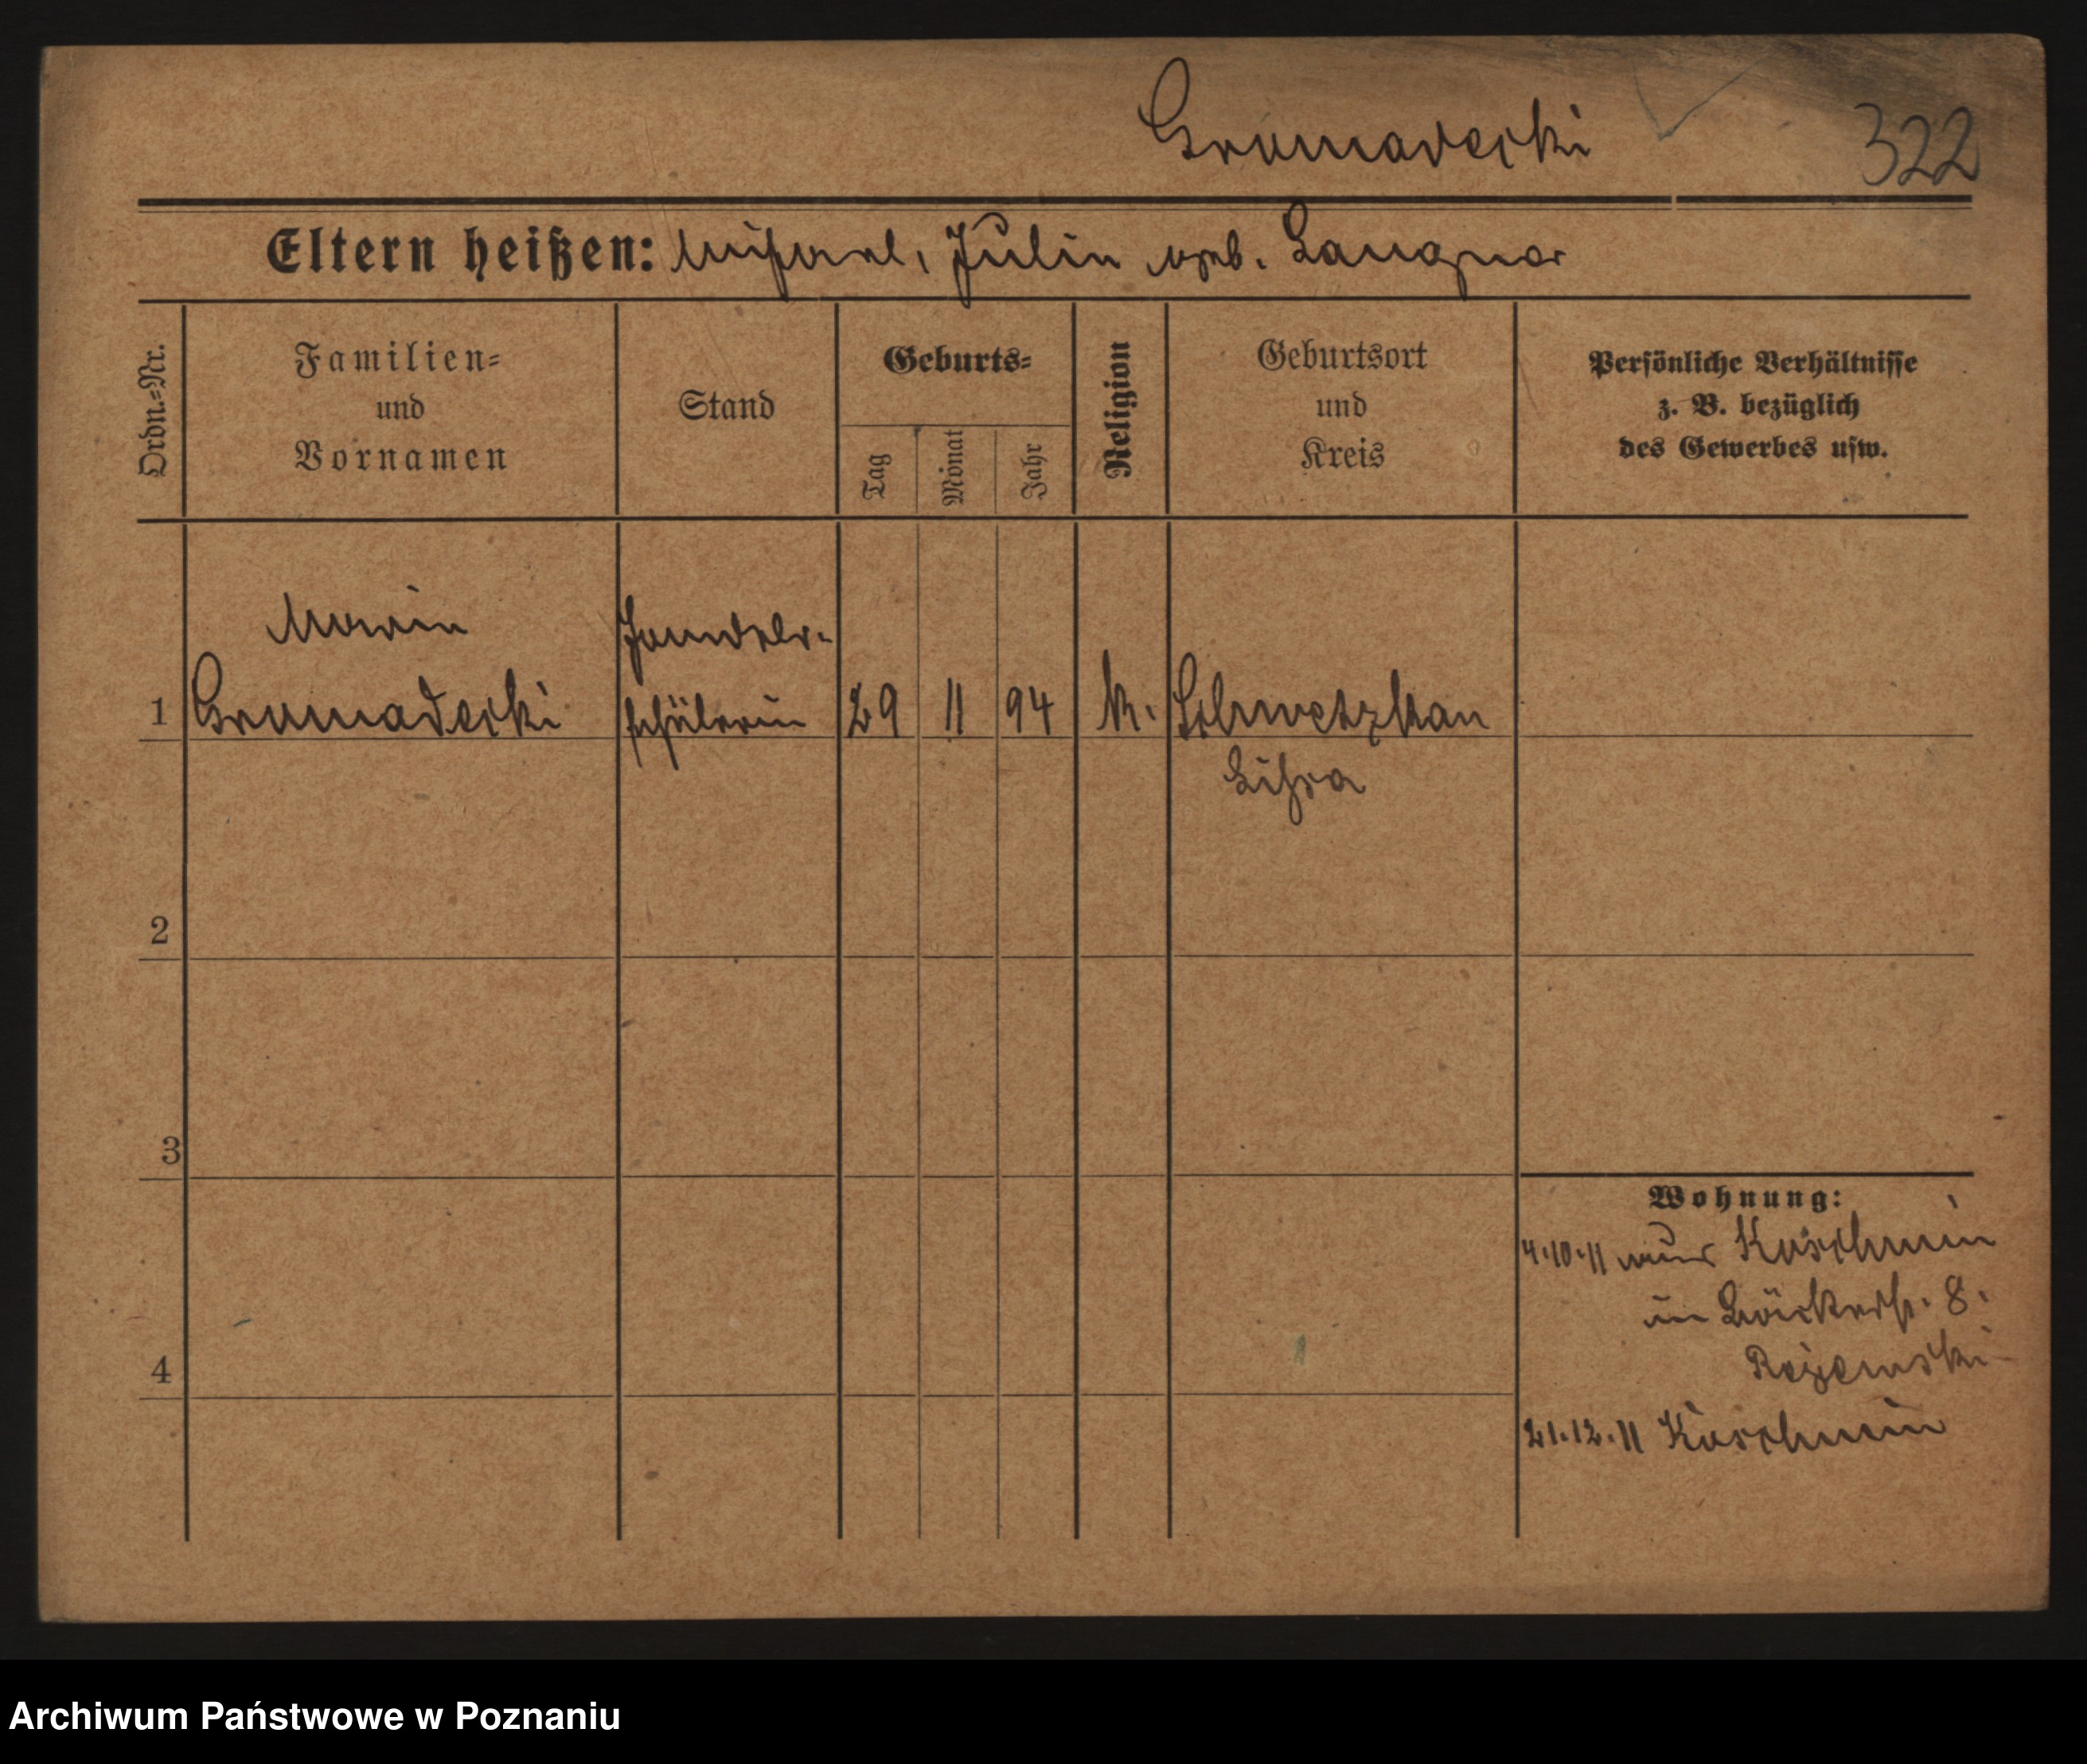 Gromadecki
322
Eltern heißen: Michael, Julia geb. Langner
Ordn.-Nr.
Familien-
und
Vornamen
Stand
Geburts-
Tag
Monat
Jahr
Religion
Geburtsort
und
Kreis
Persönliche Verhältnisse
z. B. bezüglich
des Gewerbes usw.
Maria
Handels-
1 Gromadecki schülerin 29 11 94 k. Schwetzkau
Lissa
2
3
4
Wohnung:
4.10.11 Koschmin
8.
21.12.11 Koschmin
Archiwum Państwowe w Poznaniu